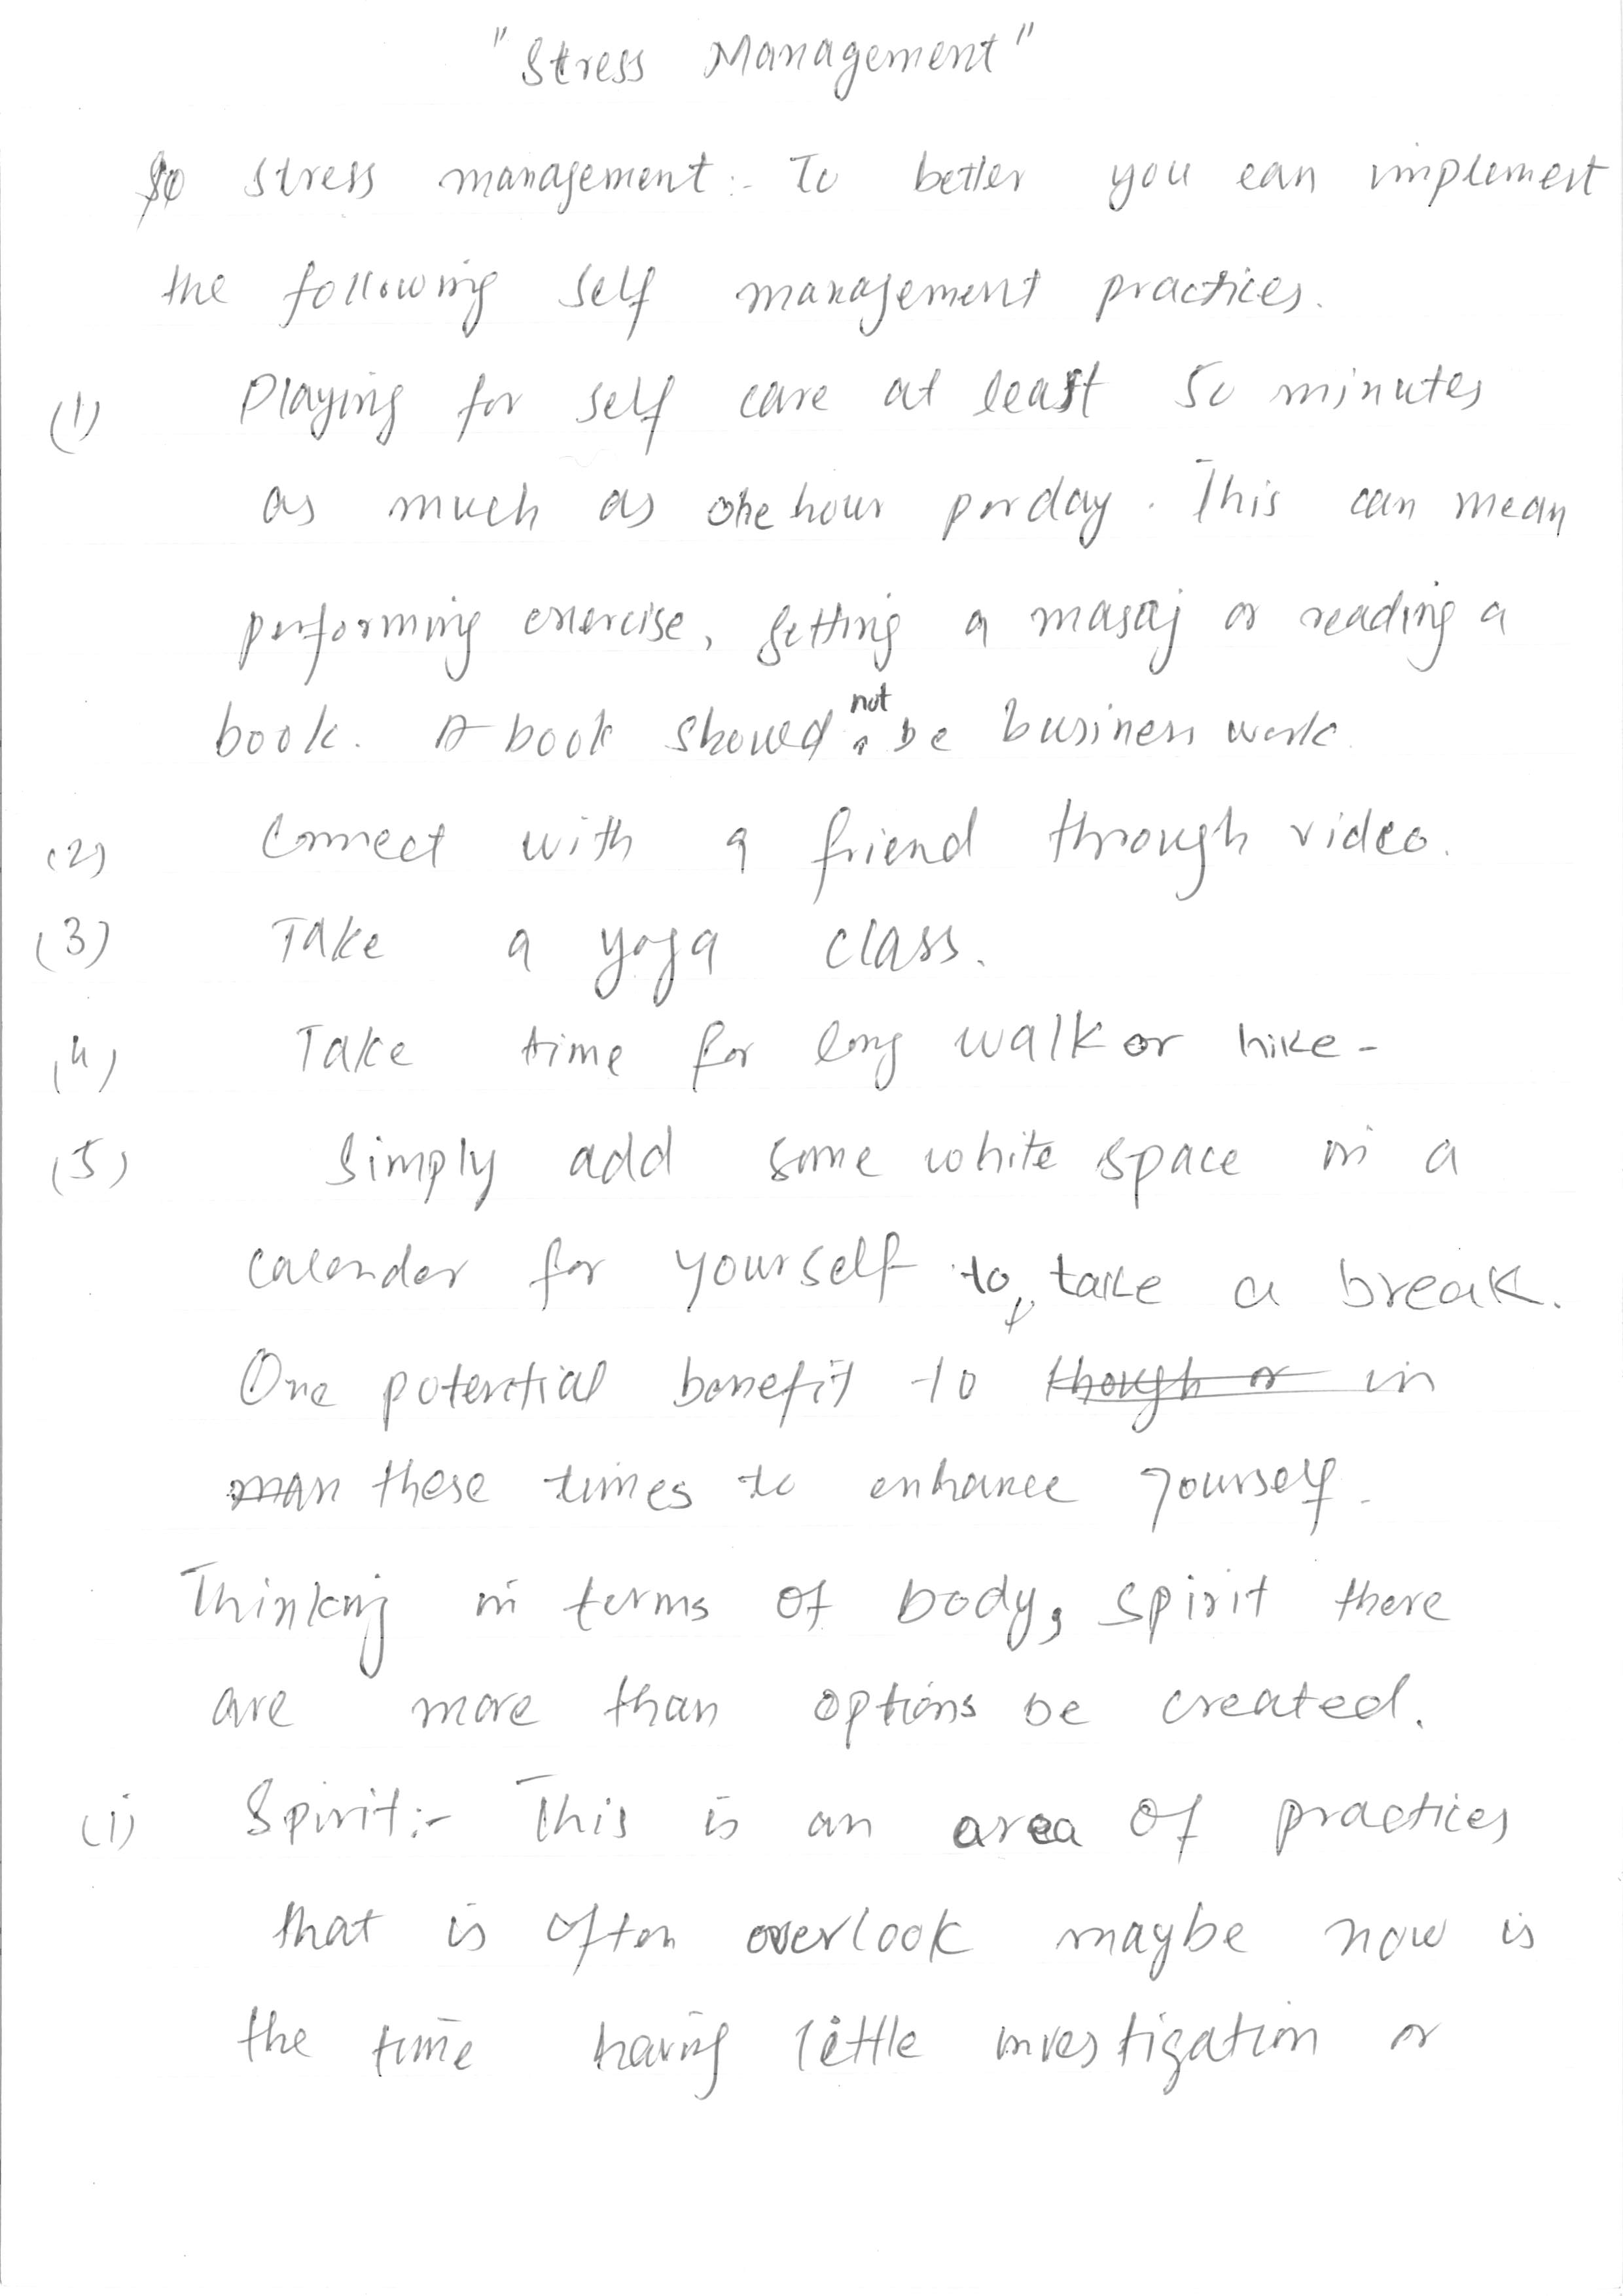 "Stress Management"
So stress management :- To better you can implement
the following self management practices.
(1) Playing for self care at least 50 minutes
as much as one hour per day. This can mean
performing exercise, getting a masaj or reading a
book. A book should not be business work.
(2) Connect with a friend through video.
(3) Take a yoga class.
(4) Take time for long walk or hike -
(5) Simply add some white space in a
calender for yourself to take a break.
One potential benefit to though or in
man these times to enhance yourself.
Thinking in terms of body, spirit there
are more than options be created.
(i) Spirit :- This is an area of practices
that is often overlook maybe now is
the time having little investigation or